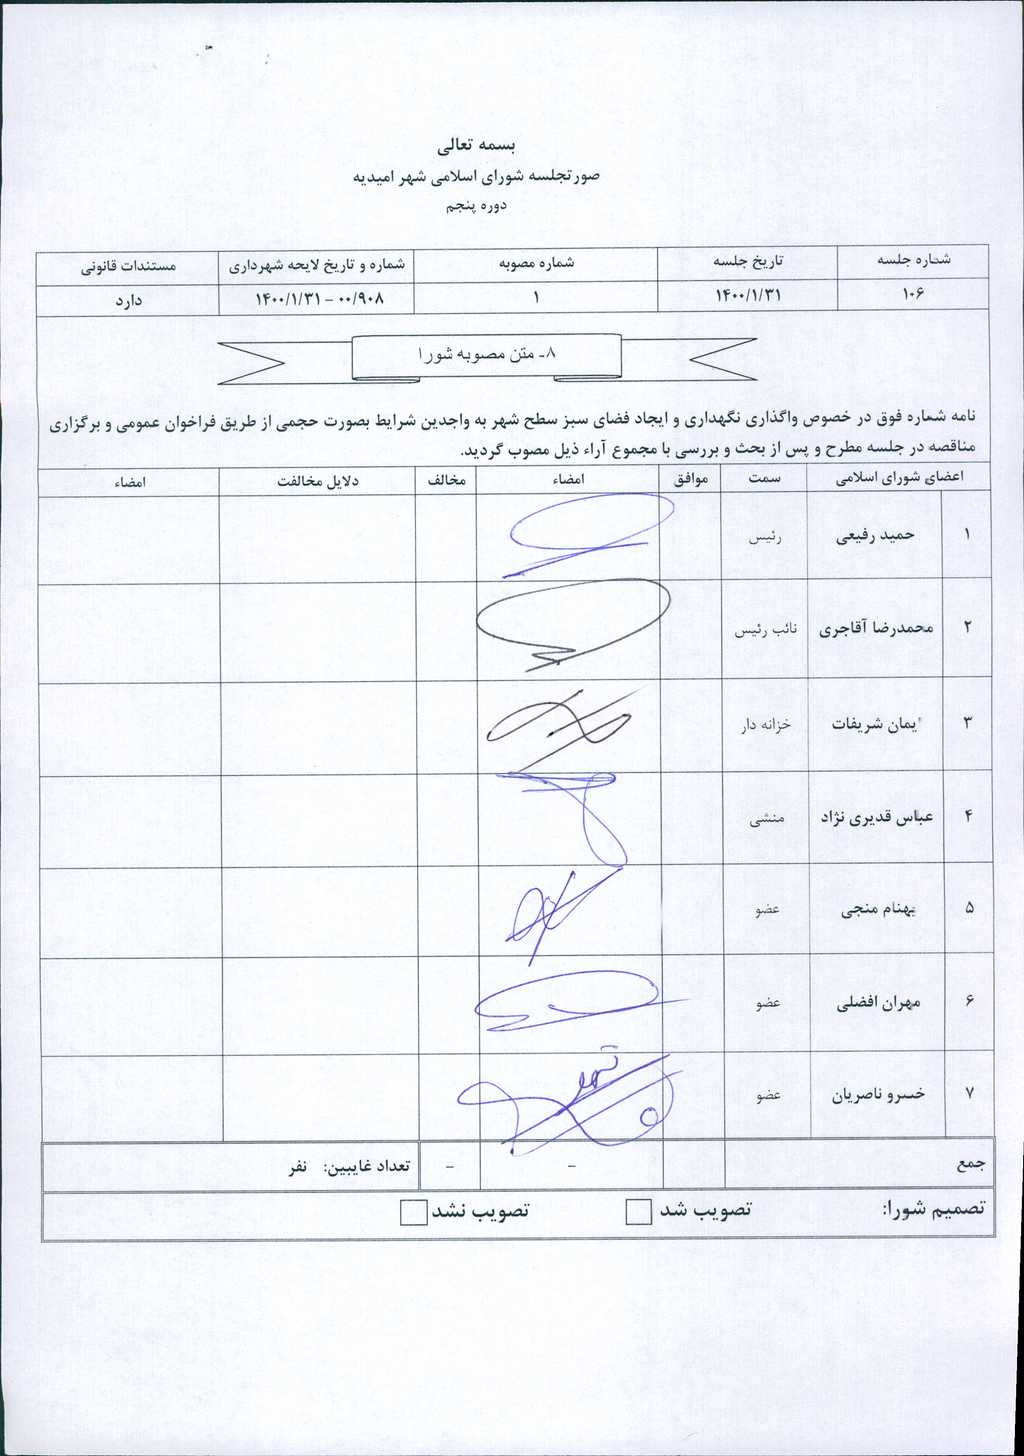 بسمه تعالی
صورتجلسه شورای اسلامی شهر امیدیه
دوره پنجم
شماره جلسه تاریخ جلسه شماره مصوبه شماره و تاریخ لایحه شهرداری مستندات قانونی
۱۰۶ ۱۴۰۰/۱/۳۱ ۱ ۰۰/۹۰۸ – ۱۴۰۰/۱/۳۱ دارد
۸- متن مصوبه شورا
نامه شماره فوق در خصوص واگذاری نگهداری و ایجاد فضای سبز سطح شهر به واجدین شرایط بصورت حجمی از طریق فراخوان عمومی و برگزاری
مناقصه در جلسه مطرح و پس از بحث و بررسی با مجموع آراء ذیل مصوب گردید.
اعضای شورای اسلامی سمت موافق امضاء مخالف دلایل مخالفت امضاء
۱ حمید رفیعی رئیس
۲ محمدرضا آقاجری نائب رئیس
۳ ایمان شریفات خزانه دار
۴ عباس قدیری نژاد منشی
۵ بهنام منجی عضو
۶ مهران افضلی عضو
۷ خسرو ناصریان عضو
جمع - - تعداد غایبین: نفر
تصمیم شورا: تصویب شد تصویب نشد